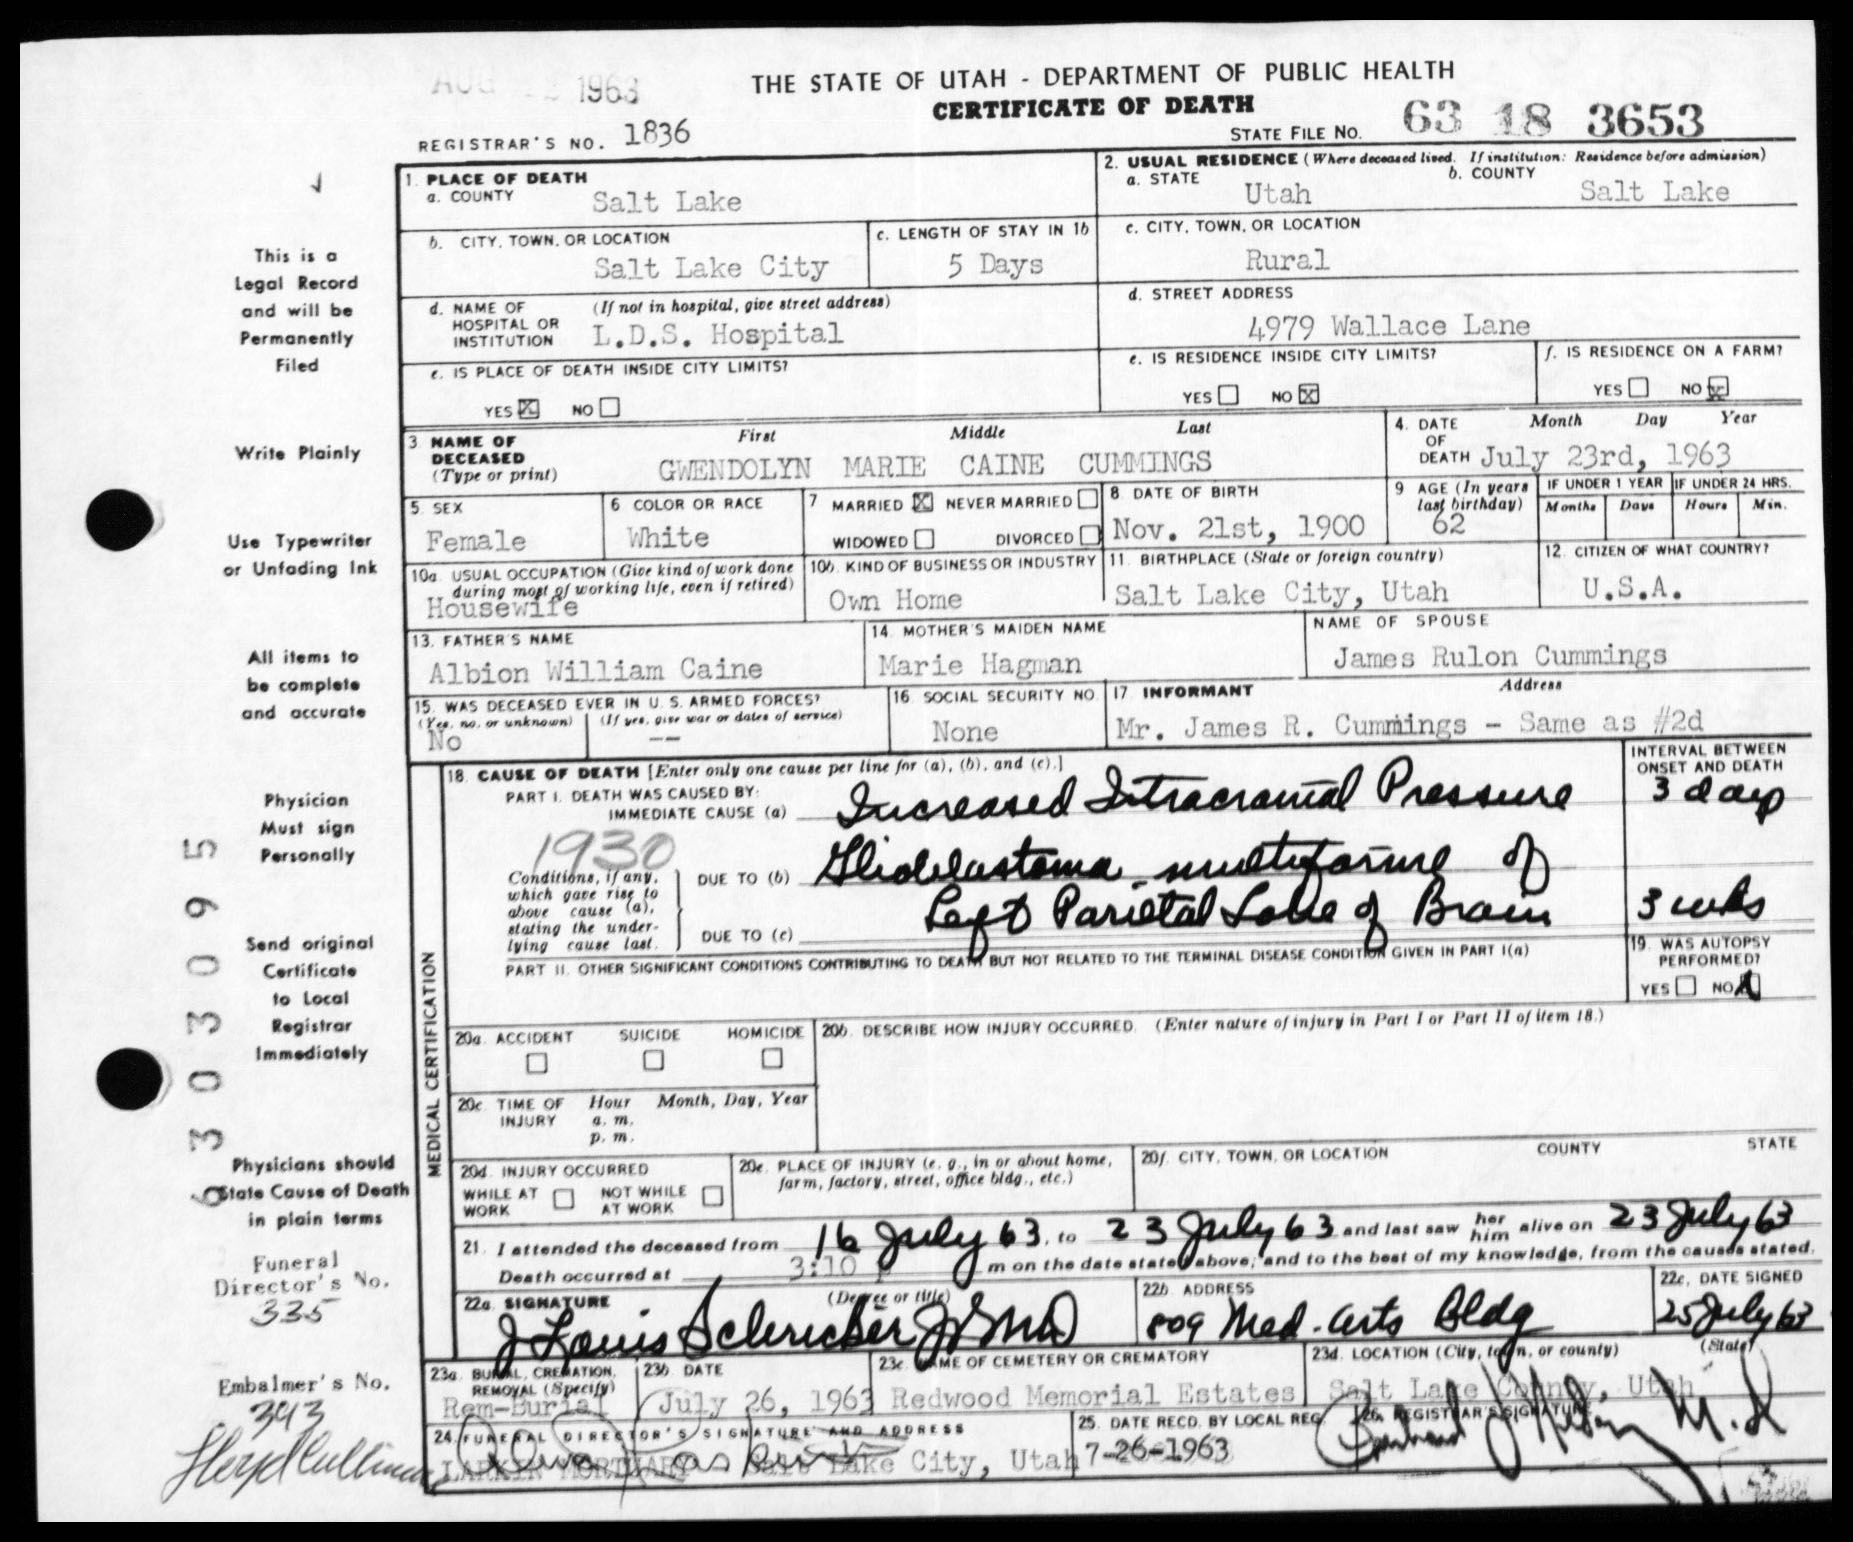 AUG 2 1963
THE STATE OF UTAH - DEPARTMENT OF PUBLIC HEALTH
CERTIFICATE OF DEATH
REGISTRAR'S NO. 1836
STATE FILE NO. 63 18 3653
This is a
Legal Record
and will be
Permanently
Filed
Write Plainly
Use Typewriter
or Unfading Ink
All items to
be complete
and accurate
Physician
Must sign
Personally
Send original
Certificate
to Local
Registrar
Immediately
Physicians should
State Cause of Death
in plain terms
Funeral
Director's No.
335
Embalmer's No.
393
6303095
1. PLACE OF DEATH
a. COUNTY Salt Lake
2. USUAL RESIDENCE (Where deceased lived. If institution: Residence before admission)
a. STATE Utah b. COUNTY Salt Lake
b. CITY, TOWN, OR LOCATION Salt Lake City
c. LENGTH OF STAY IN 1b 5 Days
c. CITY, TOWN, OR LOCATION Rural
d. NAME OF HOSPITAL OR INSTITUTION (If not in hospital, give street address)
L.D.S. Hospital
d. STREET ADDRESS
4979 Wallace Lane
e. IS PLACE OF DEATH INSIDE CITY LIMITS?
YES X NO
e. IS RESIDENCE INSIDE CITY LIMITS?
YES NO X
f. IS RESIDENCE ON A FARM?
YES NO X
3. NAME OF DECEASED (Type or print) First Middle Last
GWENDOLYN MARIE CAINE CUMMINGS
4. DATE OF DEATH Month Day Year
July 23rd, 1963
5. SEX
Female
6 COLOR OR RACE
White
7 MARRIED X NEVER MARRIED
WIDOWED DIVORCED
8. DATE OF BIRTH
Nov. 21st, 1900
9 AGE (In years last birthday)
62
IF UNDER 1 YEAR
Months Days
IF UNDER 24 HRS.
Hours Min.
10a. USUAL OCCUPATION (Give kind of work done during most of working life, even if retired)
Housewife
10b. KIND OF BUSINESS OR INDUSTRY
Own Home
11. BIRTHPLACE (State or foreign country)
Salt Lake City, Utah
12. CITIZEN OF WHAT COUNTRY?
U.S.A.
13. FATHER'S NAME
Albion William Caine
14. MOTHER'S MAIDEN NAME
Marie Hagman
NAME OF SPOUSE
James Rulon Cummings
15. WAS DECEASED EVER IN U. S. ARMED FORCES?
(Yes, no, or unknown) (If yes, give war or dates of service)
No --
16. SOCIAL SECURITY NO.
None
17. INFORMANT Address
Mr. James R. Cummings - Same as #2d
MEDICAL CERTIFICATION
18. CAUSE OF DEATH [Enter only one cause per line for (a), (b), and (c).]
INTERVAL BETWEEN ONSET AND DEATH
PART I. DEATH WAS CAUSED BY:
IMMEDIATE CAUSE (a) Increased Intracranial Pressure 3 days
1930
Conditions, if any, which gave rise to above cause (a), stating the underlying cause last.
DUE TO (b) Glioblastoma multiforme of
Left Parietal Lobe of Brain 3 wks
DUE TO (c)
PART II. OTHER SIGNIFICANT CONDITIONS CONTRIBUTING TO DEATH BUT NOT RELATED TO THE TERMINAL DISEASE CONDITION GIVEN IN PART I(a)
19. WAS AUTOPSY PERFORMED?
YES NO X
20a. ACCIDENT SUICIDE HOMICIDE
20b. DESCRIBE HOW INJURY OCCURRED. (Enter nature of injury in Part I or Part II of item 18.)
20c. TIME OF INJURY Hour Month, Day, Year
a. m.
p. m.
20d. INJURY OCCURRED
WHILE AT WORK NOT WHILE AT WORK
20e. PLACE OF INJURY (e. g., in or about home, farm, factory, street, office bldg., etc.)
20f. CITY, TOWN, OR LOCATION COUNTY STATE
21. I attended the deceased from 16 July 63, to 23 July 63 and last saw her him alive on 23 July 63
Death occurred at 3:10 p m on the date stated above; and to the best of my knowledge, from the causes stated.
22a. SIGNATURE (Degree or title)
J Louis Schricker Jr MD
22b. ADDRESS
809 Med. Arts Bldg
22c. DATE SIGNED
25 July 63
23a. BURIAL, CREMATION, REMOVAL (Specify)
Rem-Burial
23b. DATE
July 26, 1963
23c. NAME OF CEMETERY OR CREMATORY
Redwood Memorial Estates
23d. LOCATION (City, town, or county) (State)
Salt Lake County, Utah
24. FUNERAL DIRECTOR'S SIGNATURE AND ADDRESS
LARKIN MORTUARY - Salt Lake City, Utah
25. DATE RECD. BY LOCAL REG.
7-26-1963
26. REGISTRAR'S SIGNATURE
M.D